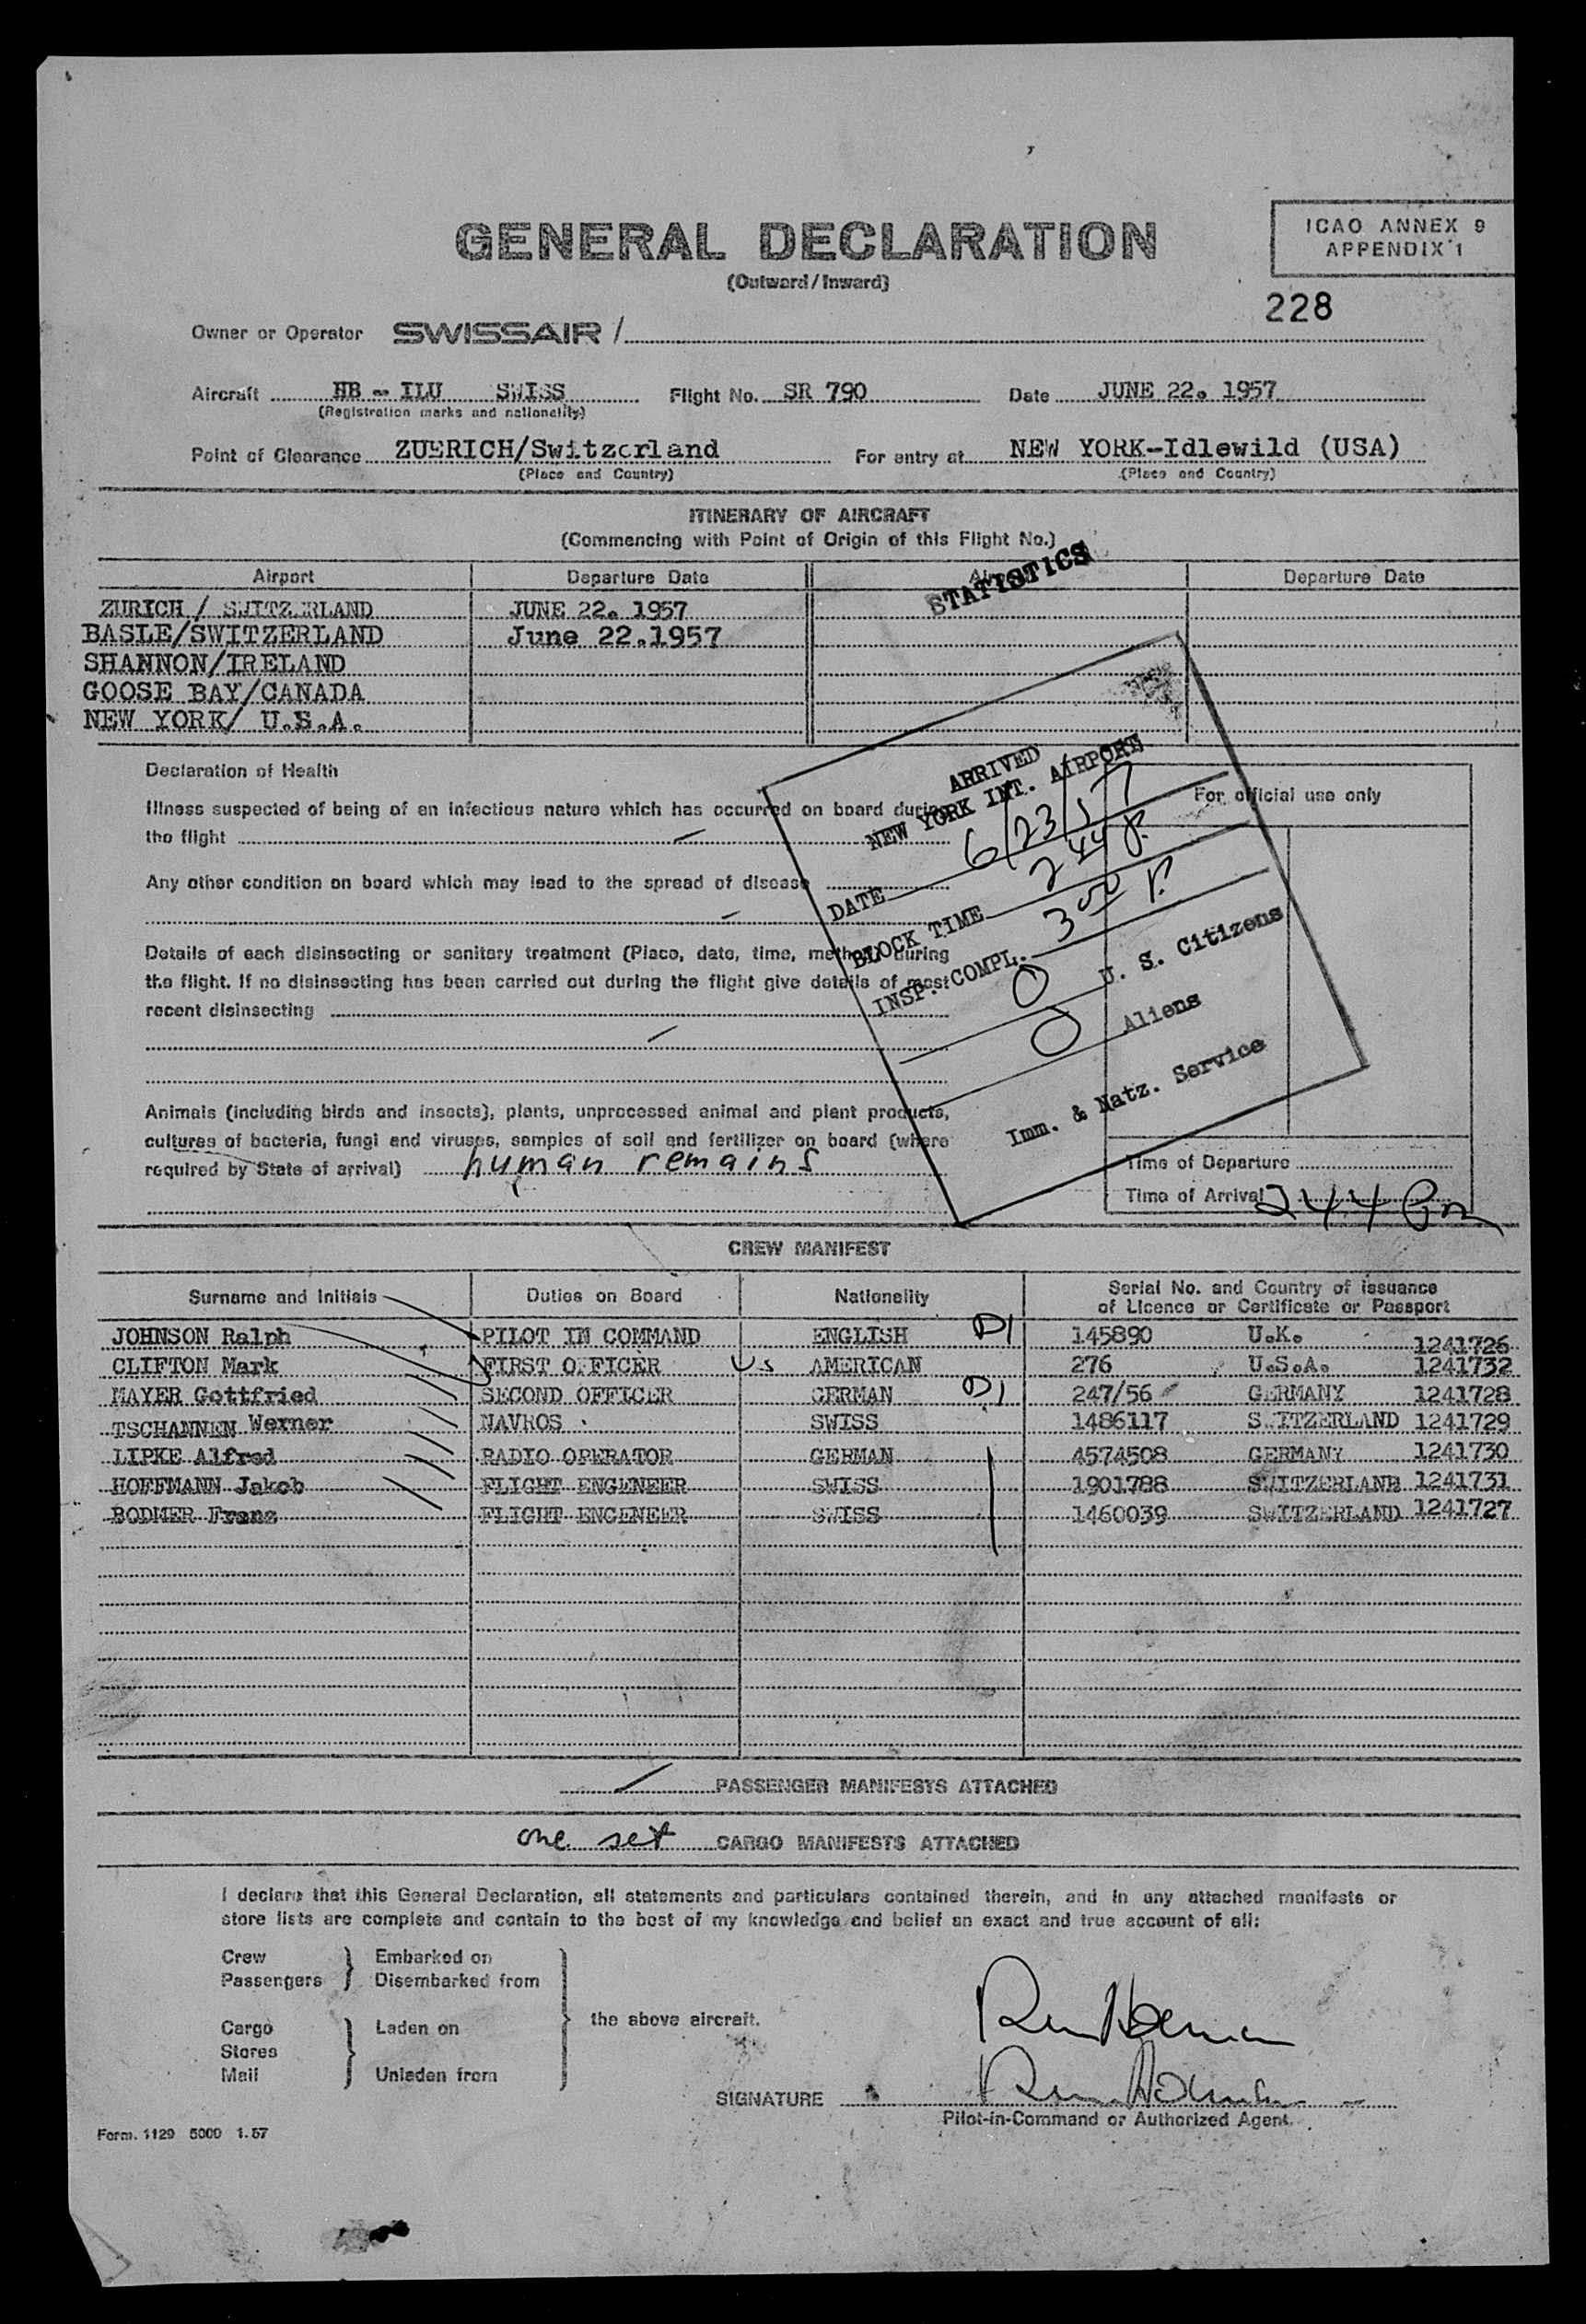 GENERAL DECLARATION
(Outward/Inward)
ICAO ANNEX 9
APPENDIX 1
228
Owner or Operator SWISSAIR /
Aircraft HB - ILU SWISS Flight No. SR 790 Date JUNE 22. 1957
(Registration marks and nationality)
Point of Clearance ZUERICH/Switzerland For entry at NEW YORK-Idlewild (USA)
(Place and Country) (Place and Country)
ITINERARY OF AIRCRAFT
(Commencing with Point of Origin of this Flight No.)
STATISTICS
Airport Departure Date Airport Departure Date
ZURICH / SWITZERLAND JUNE 22. 1957
BASLE/SWITZERLAND June 22.1957
SHANNON/IRELAND
GOOSE BAY/CANADA
NEW YORK/ U.S.A.
Declaration of Health
Illness suspected of being of an infectious nature which has occurred on board during
the flight
Any other condition on board which may lead to the spread of disease
Details of each disinsecting or sanitary treatment (Place, date, time, method) during
the flight. If no disinsecting has been carried out during the flight give details of most
recent disinsecting
Animals (including birds and insects), plants, unprocessed animal and plant products,
cultures of bacteria, fungi and viruses, samples of soil and fertilizer on board (where
required by State of arrival) human remains
ARRIVED
NEW YORK INT. AIRPORT
DATE 6/23/57
BLOCK TIME 2 44 P.
INSP. COMPL. 3 50 P.
0 U. S. Citizens
0 Aliens
Imm. & Natz. Service
For official use only
Time of Departure
Time of Arrival 2 44 Pm
CREW MANIFEST
Surname and Initials Duties on Board Nationality Serial No. and Country of issuance
of Licence or Certificate or Passport
JOHNSON Ralph PILOT IN COMMAND ENGLISH D1 145890 U.K. 1241726
CLIFTON Mark FIRST OFFICER US AMERICAN 276 U.S.A. 1241732
MAYER Gottfried SECOND OFFICER GERMAN D1 247/56 GERMANY 1241728
TSCHANNEN Werner NAVROS SWISS 1486117 SWITZERLAND 1241729
LIPKE Alfred RADIO OPERATOR GERMAN 4574508 GERMANY 1241730
HOFFMANN Jakob FLIGHT ENGENEER SWISS 1901788 SWITZERLAND 1241731
BODMER Frans FLIGHT ENGENEER SWISS 1460039 SWITZERLAND 1241727
PASSENGER MANIFESTS ATTACHED
one set CARGO MANIFESTS ATTACHED
I declare that this General Declaration, all statements and particulars contained therein, and in any attached manifests or
store lists are complete and contain to the best of my knowledge and belief an exact and true account of all:
Crew Embarked on
Passengers Disembarked from
the above aircraft.
Cargo Laden on
Stores
Mail Unladen from
SIGNATURE
Pilot-in-Command or Authorized Agent.
Form. 1129 5000 1.57